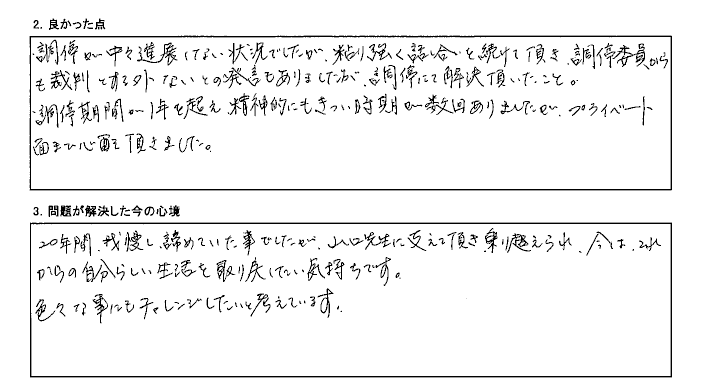 2. 良かった点
調停が中々進展しない状況でしたが、粘り強く話し合いを続けて頂き、調停委員から
も裁判とする外ないとの発言もありましたが、調停にて解決頂いたこと。
調停期間が1年を超え精神的にもきつい時期が数回ありましたが、プライベート
面まで心配を頂きました。
3. 問題が解決した今の心境
20年間、我慢し諦めていた事でしたが、山口先生に支えて頂き乗り越えられ、今は、これ
からの自分らしい生活を取り戻したい気持ちです。
色々な事にもチャレンジしたいと考えています。